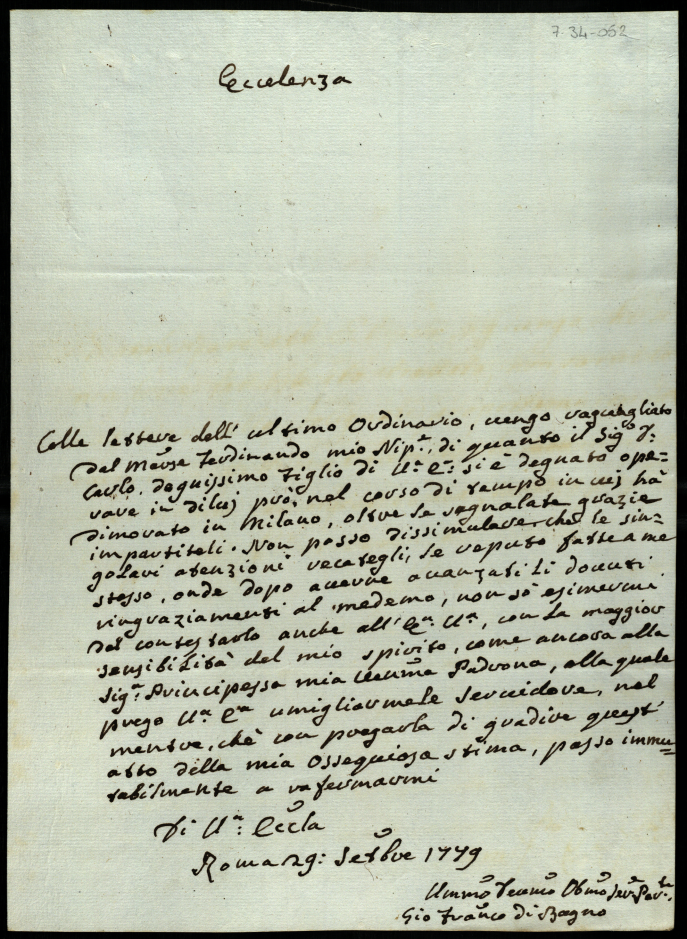 7-34-052
Eccelenza
Colle lettere dell' ultimo Ordinario, vengo raguagliato
dal Mẽrse Ferdinando mio Nip.e, di quanto il Sig.r D.
Carlo, degnissimo Figlio di V.a E.a si è degnato ope=
rare in di lui prò, nel corso di tempo in cui hà
dimorato in Milano, oltre le segnalate grazie
impartiteli. Non posso dissimulare, chè le sin=
golari atenzioni recategli, le reputo fatte a me
stesso, onde dopo averne avanzati li dovuti
ringraziamenti al medemo, non sò esimermi
dal contestarlo anche all' E.a V.a, con la maggior
sensibilità del mio spirito, come ancora alla
Sig.a Principessa mia Padrona, alla quale
prego V.a E.a umigliarmele Servidore, nel
mentre, chè con pregarla di gradire quest'
atto della mia ossequiosa stima, passo immu=
tabilmente a rafermarmi
Di V.a Eccla
Roma 29: Settbre 1779
Ummo Devmo Obmo Ser.
Gio Franco di Bagno